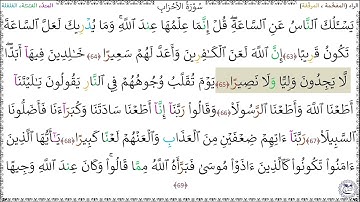 سُورَةُ الأَحْزَابِ
يَسْـَٔلُكَ ٱلنَّاسُ عَنِ ٱلسَّاعَةِ ۖ قُلْ إِنَّمَا عِلْمُهَا عِندَ ٱللَّهِ ۚ وَمَا يُدْرِيكَ لَعَلَّ ٱلسَّاعَةَ
تَكُونُ قَرِيبًا ﴿63﴾ إِنَّ ٱللَّهَ لَعَنَ ٱلْكَٰفِرِينَ وَأَعَدَّ لَهُمْ سَعِيرًا ﴿64﴾ خَٰلِدِينَ فِيهَآ أَبَدًا ۖ
لَّا يَجِدُونَ وَلِيًّا وَلَا نَصِيرًا ﴿65﴾ يَوْمَ تُقَلَّبُ وُجُوهُهُمْ فِي ٱلنَّارِ يَقُولُونَ يَٰلَيْتَنَآ
أَطَعْنَا ٱللَّهَ وَأَطَعْنَا ٱلرَّسُولَا۠ ﴿66﴾ وَقَالُوا۟ رَبَّنَآ إِنَّآ أَطَعْنَا سَادَتَنَا وَكُبَرَآءَنَا فَأَضَلُّونَا
ٱلسَّبِيلَا۠ ﴿67﴾ رَبَّنَآ ءَاتِهِمْ ضِعْفَيْنِ مِنَ ٱلْعَذَابِ وَٱلْعَنْهُمْ لَعْنًا كَبِيرًا ﴿68﴾ يَٰٓأَيُّهَا ٱلَّذِينَ
ءَامَنُوا۟ لَا تَكُونُوا۟ كَٱلَّذِينَ ءَاذَوْا۟ مُوسَىٰ فَبَرَّأَهُ ٱللَّهُ مِمَّا قَالُوا۟ ۚ وَكَانَ عِندَ ٱللَّهِ وَجِيهًا
﴿69﴾